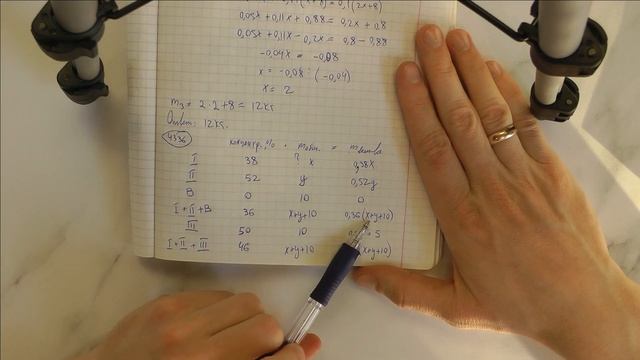 = 0,1(2x+8)
0,05x + 0,11x + 0,88 = 0,2x + 0,8
0,05x + 0,11x - 0,2x = 0,8 - 0,88
-0,04x = -0,08
x = -0,08 : (-0,04)
x = 2
m₃ = 2·2+8 = 12кг
Ответ: 12кг.
4336
концентр,% · mобщ = mвещ-ва
I 38 ? x 0,38x
II 52 y 0,52y
В 0 10 0
I+II+В 36 x+y+10 0,36(x+y+10)
III 50 10 5
I+II+III 46 x+y+10 (x+y+10)